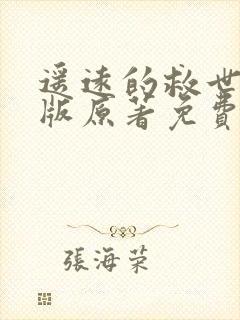 遥远的救世
版原著免費
張海荣